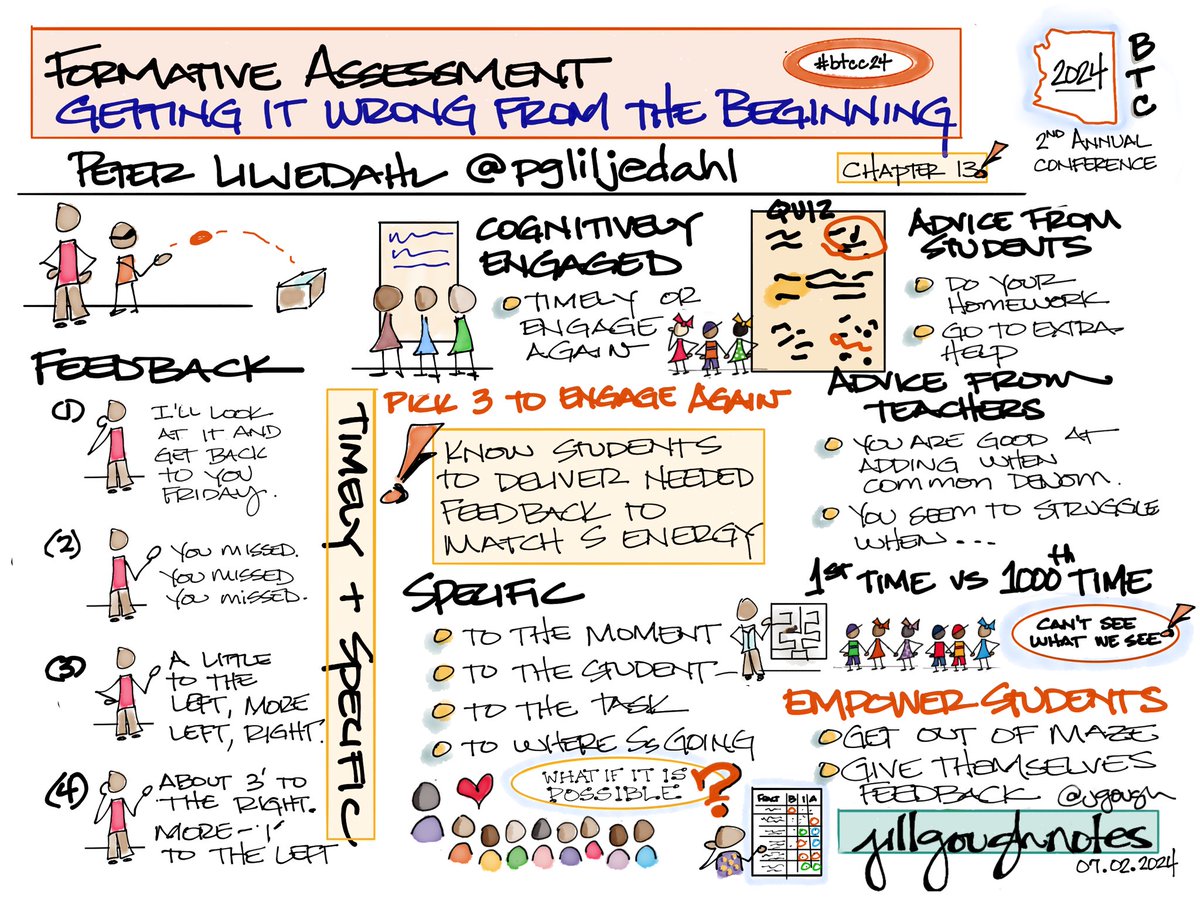 FORMATIVE ASSESSMENT
GETTING IT WRONG FROM THE BEGINNING
#btcc24
2024
BTC
2ND ANNUAL
CONFERENCE
PETER LILJEDAHL @pgliljedahl
CHAPTER 13!
FEEDBACK
1)
I'LL LOOK
AT IT AND
GET BACK
TO YOU
FRIDAY.
(2)
YOU MISSED.
YOU MISSED
YOU MISSED.
(3)
A LITTLE
TO THE
LEFT, MORE
LEFT, RIGHT.
(4)
ABOUT 3' TO
THE RIGHT.
MORE - 1'
TO THE LEFT
TIMELY + SPECIFIC
COGNITIVELY
ENGAGED
TIMELY OR
ENGAGE
AGAIN
QUIZ
PICK 3 TO ENGAGE AGAIN
! KNOW STUDENTS
TO DELIVER NEEDED
FEEDBACK TO
MATCH S ENERGY
SPECIFIC
TO THE MOMENT
TO THE STUDENT
TO THE TASK
TO WHERE Ss GOING
WHAT IF IT IS
POSSIBLE ?
B I A
ADVICE FROM
STUDENTS
DO YOUR
HOMEWORK
GO TO EXTRA-
HELP
ADVICE FROM
TEACHERS
YOU ARE GOOD AT
ADDING WHEN
COMMON DENOM.
YOU SEEM TO STRUGGLE
WHEN...
1ST TIME VS 1000th TIME
CAN'T SEE
WHAT WE SEE!
EMPOWER STUDENTS
GET OUT OF MAZE
GIVE THEMSELVES
FEEDBACK @jgough
jillgoughnotes
07.02.2024